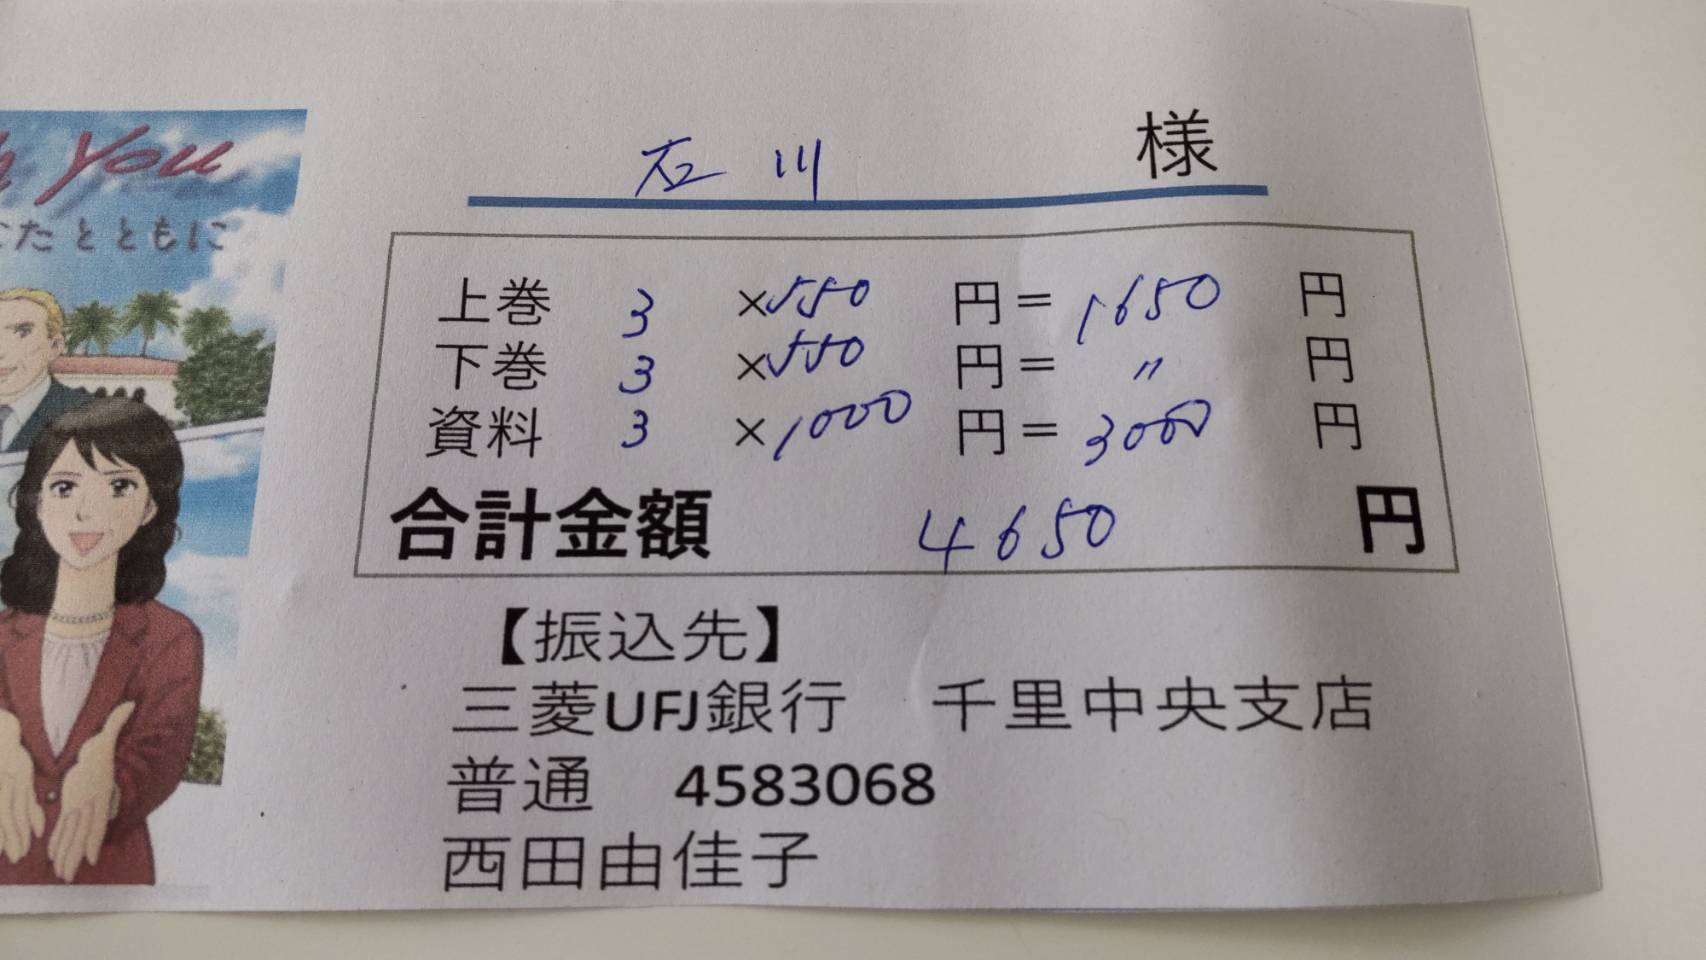 You
たとともに
石川 様
上巻 3 ×550 円= 1650 円
下巻 3 ×550 円= 〃 円
資料 3 ×1000 円= 3000 円
合計金額 4650 円
【振込先】
三菱UFJ銀行 千里中央支店
普通 4583068
西田由佳子